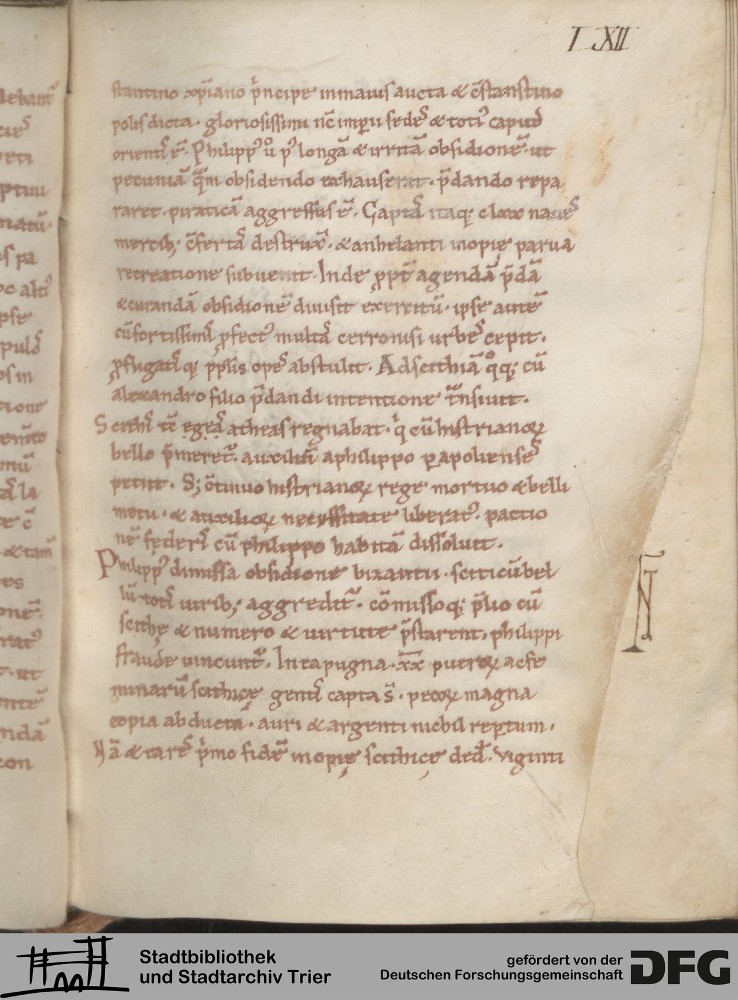 LXII
stantino xp̄iano p̄ncipe in maius aucta & c̄stanstino
polis dicta. gloriosissimi nc̄ imp̄ii sedes̄ & toti᷒ caput
orientis ē. Philipp᷒ ů p᷒ longā & irritā obsidionē. ut
pecuniā quā obsidendo exhauserat. p̄dando repa
raret. piraticā aggressus ē. Captas̄ itaq; clxx naues̄
mercib; c̄fertas̄ destruxit. & anhelanti inopie parua
recreatione subuenit. Inde ꝓpt̄ agendā p̄dā
& curandā obsidionē diuisit exercitū. ipse autē
cū fortissimis ꝓfect᷒ multas̄ cerronisi urbes̄ cepit.
ꝓfligatisq; pp̄lis opes̄ abstulit. Ad scithiā q̊q; cū
alexandro filio p̄dandi intentione tn̄siuit.
Scithis tc̄ egeas̄ atheas regnabat. q̇ cū histrianoꝝ
bello p̄meret᷒. auxiliū a philippo ꝑ apolienses̄
petiit. S; c̄tinuo histrianoꝝ rege mortuo & belli
metu. & auxilioꝝ necessitate liberat᷒. pactio
nē federis cū philippo habitā dissoluit.
Philipp᷒ dimissa obsidione bizantii. sciticū bel
lū totis uirib; aggredit᷒. cōmissoq; p̄lio cū
scithe & numero & uirtute p̄starent. philippi
fraude uincunt᷒. In ea pugna. xx pueroꝝ ac fe
minarū scithice gentis capta s̄. pecoꝝ magna
copia abducta. auri & argenti nichil repertum.
Nā & ea res̄ p̄mo fidē inopie scithice ded̄. viginti
N
Stadtbibliothek
und Stadtarchiv Trier
gefördert von der
Deutschen Forschungsgemeinschaft
DFG